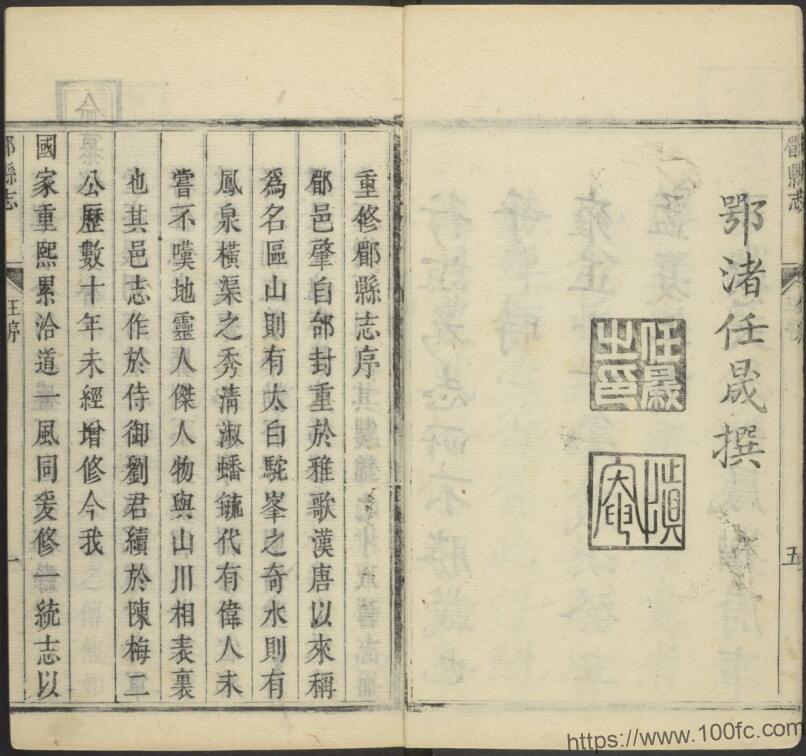 鄂渚任晟撰
任晟之印
五
重修郿縣志序
郿邑肇自邰封重於雅歌漢唐以來稱
為名區山則有太白駝峯之奇水則有
鳳泉橫渠之秀清淑蟠毓代有偉人未
嘗不嘆地靈人傑人物與山川相表裏
也其邑志作於侍御劉君續於陳梅二
公歷數十年未經增修今我
國家重熙累洽道一風同爰修一統志以
郿縣志
汪序
一
https://www.100fc.com